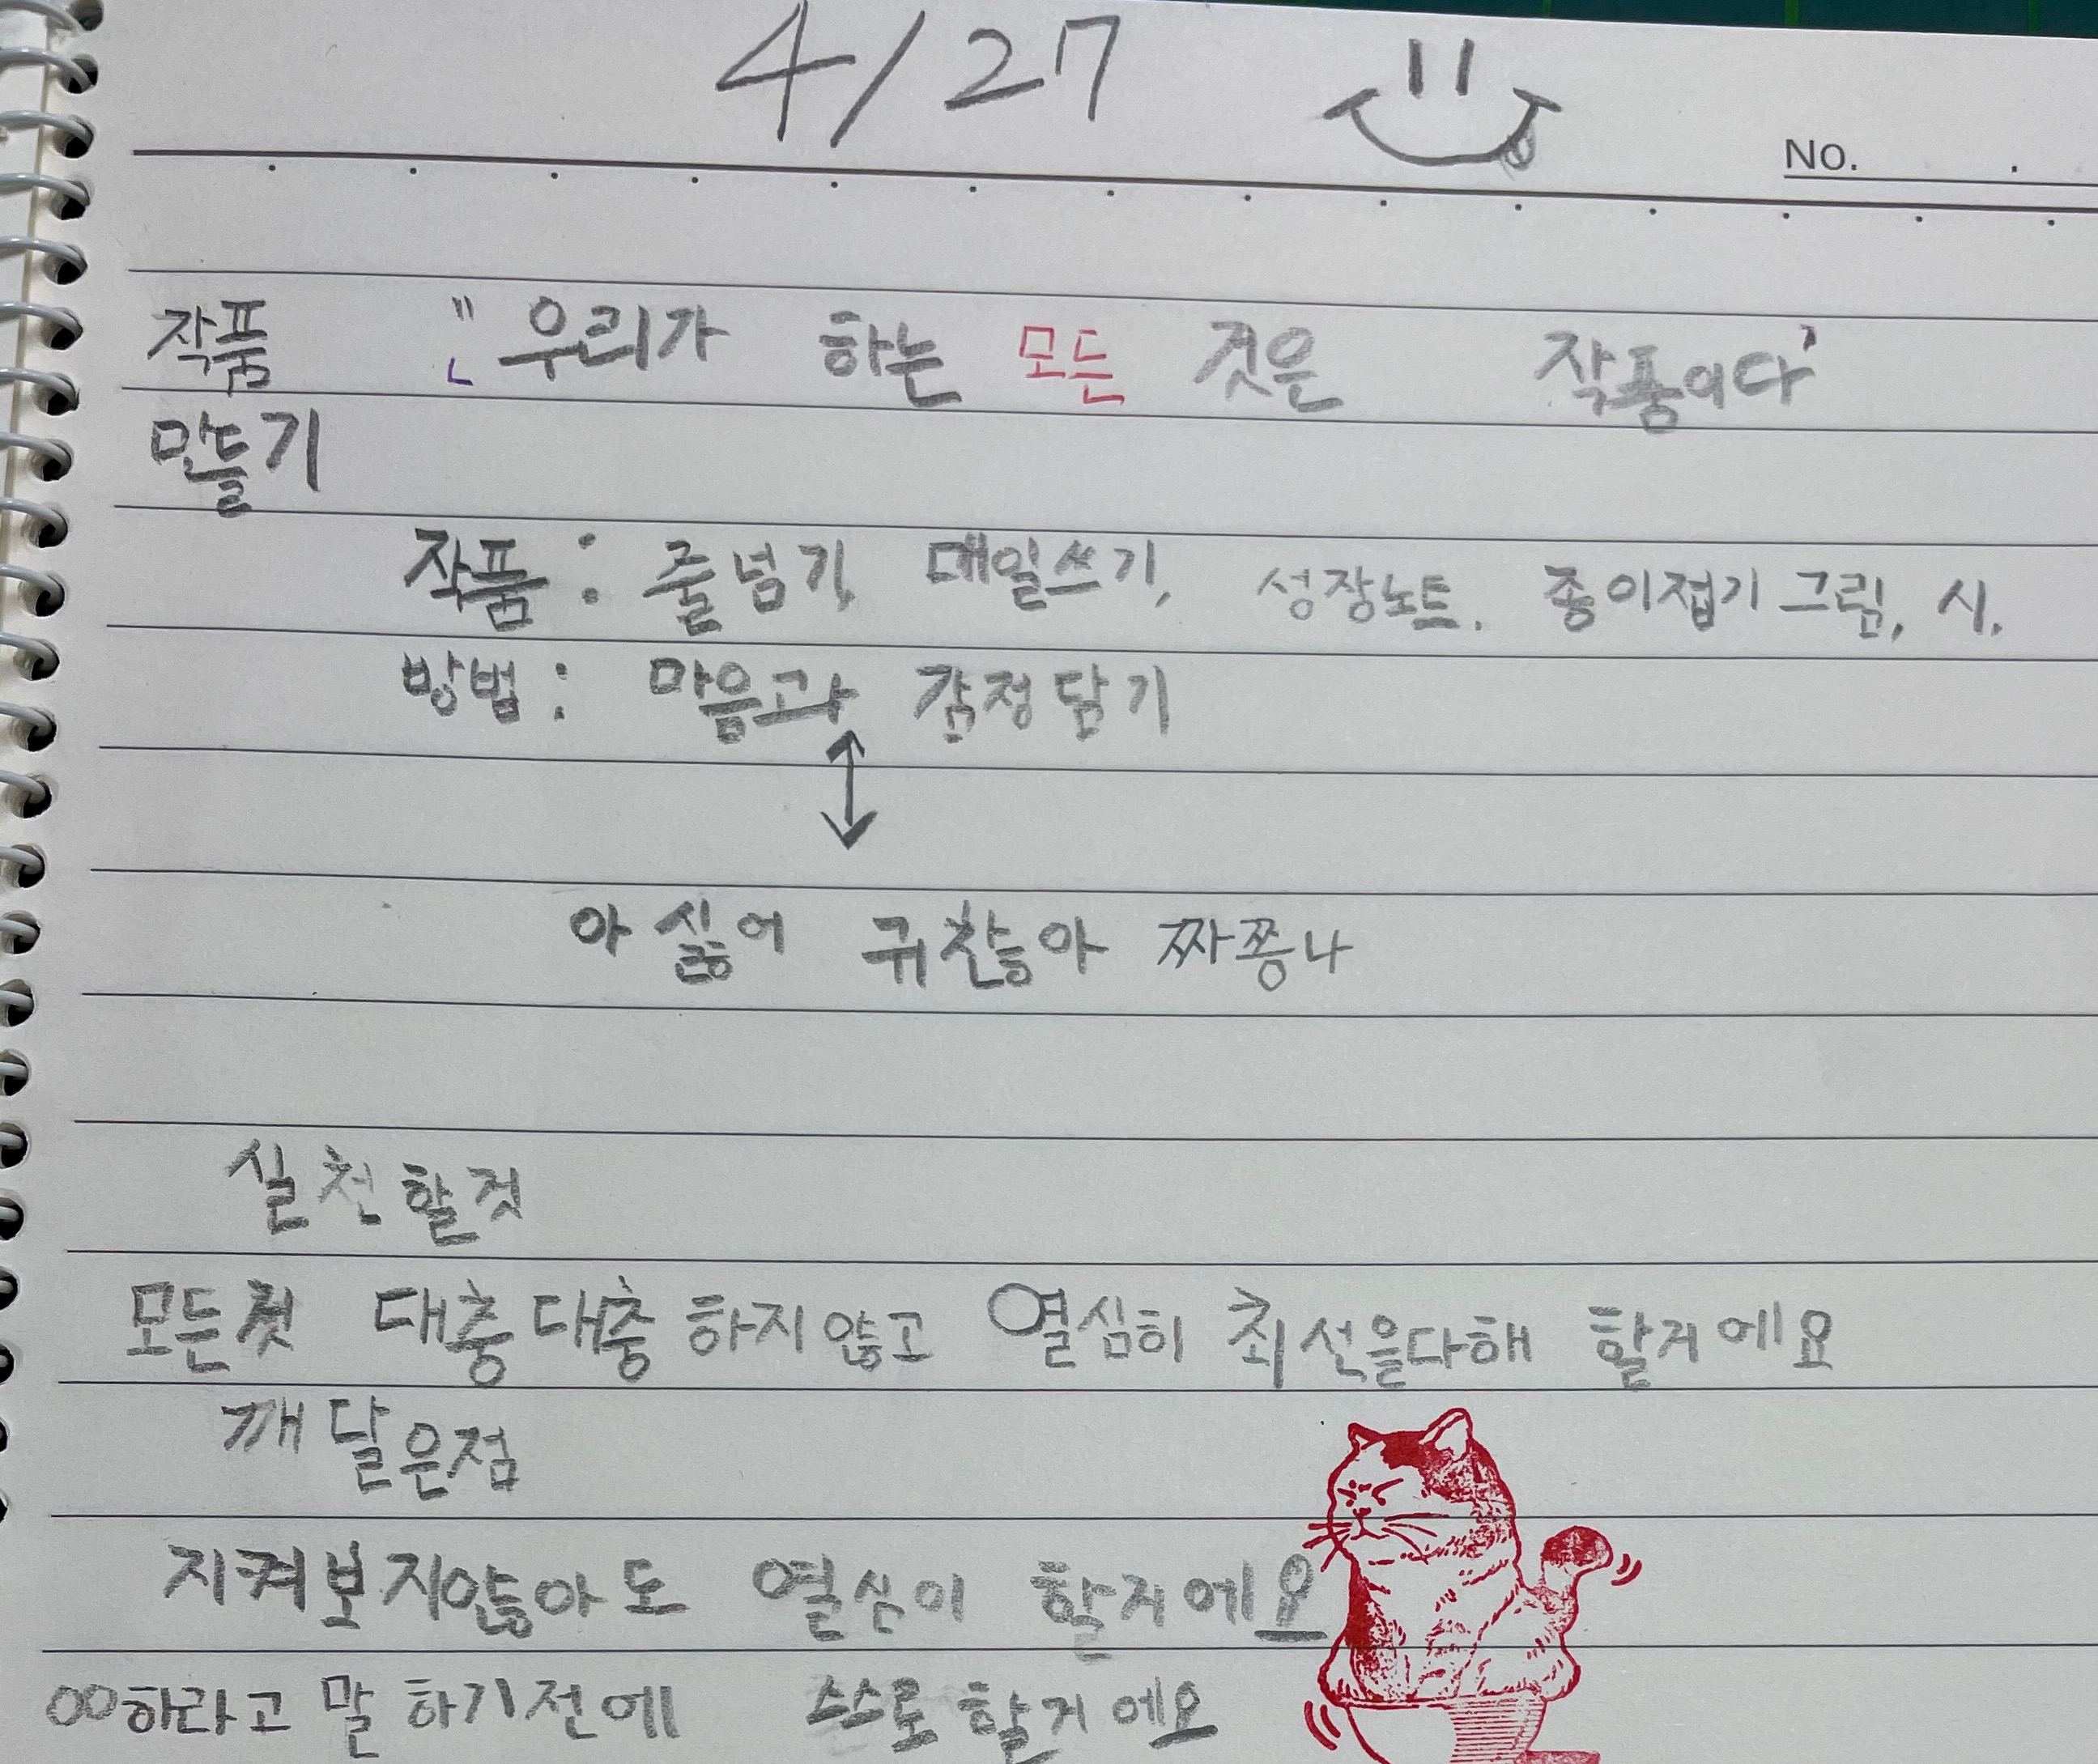 4/27
No.
작품 " 우리가 하는 모든 것은 작품이다'
만들기
작품 : 줄넘기, 매일쓰기, 성장노트. 종이접기 그림, 시.
방법 : 마음과 감정담기
아 싫어 귀찮아 짜쯩나
실천할것
모든것 대충대충 하지않고 열심히 최선을다해 할거에요
깨달은점
지켜보지않아도 열심이 할거에요
00하라고 말하기전에 스스로 할거에요